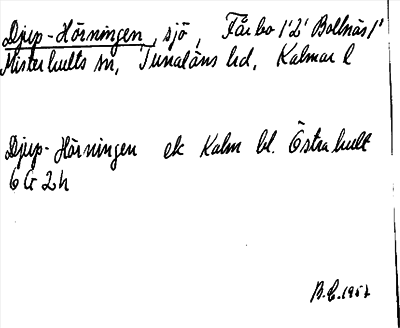 Djup-Hörningen, sjö, Fårbo /'2' Bollnäs/'
Misterhults sn, Tunaläns hd, Kalmar l
Djup-Hörningen ek Kalm bl. Östrahult
6 G 2 h
B.E. 1957